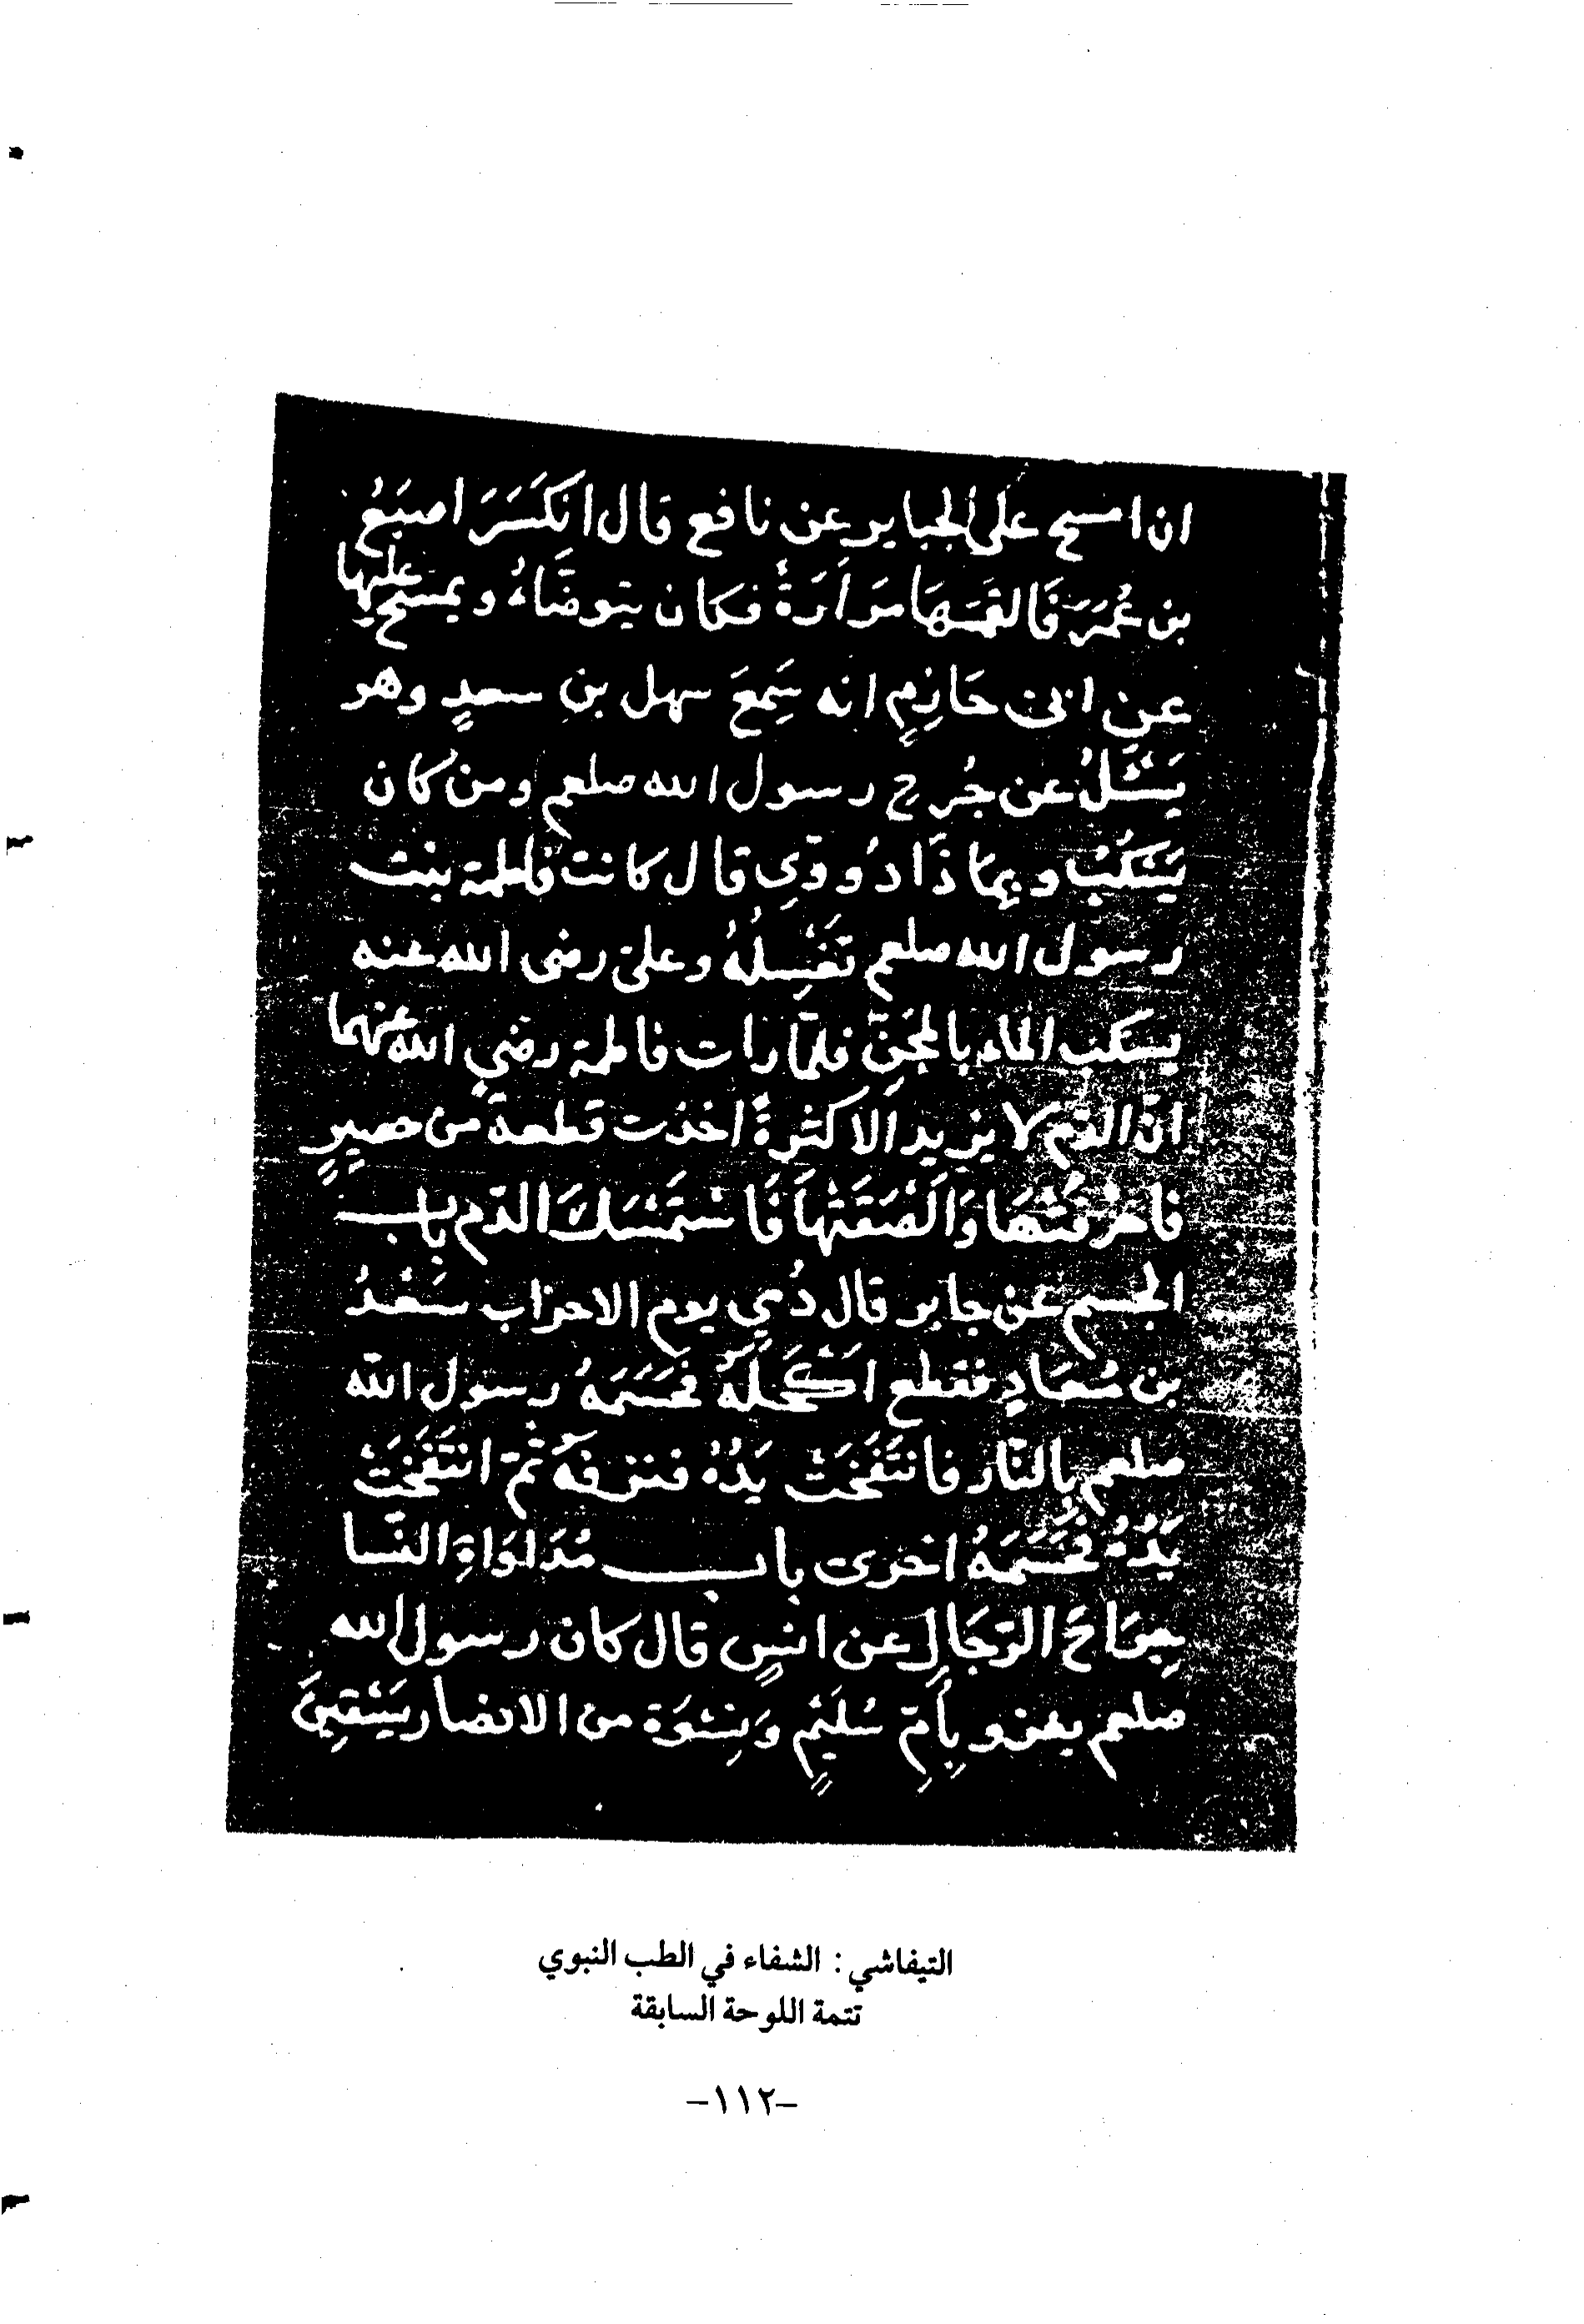 ان امسح على الجباير عن نافع قال انكَسَرَ اصبَعُ
بن عُمَرَ فَالقَمَهَا مَرَارَةً فكان يتوضَّاءُ ويمسح عليها
عن ابى حَازِمٍ انه سَمِعَ سهل بنِ سعدٍ وهو
يَسْئَلُ عن جُرح رسول الله صلعم ومن كان
يَسْكُبُ وبِمَا ذَا دُووِيَ قال كانت فاطمة بنت
رسول الله صلعم تَغْسِلُهُ وعلى رضى الله عنه
يسكب الماء بالمجَنِّ فلمّا رات فاطمة رضي الله عنهما
انّ الدّم لا يزيد الا كثرةً اخذت قطعة من حصيرٍ
فاحرقَتْهَا وَالْصَقَتْهَا فَاسْتَمْسَكَ الدّم باب
الجسم عن جابر قال رُمِي يوم الاحزاب سَعْدُ
بن مُعَادٍ فقطع اكْحَلَهُ فحَسَمَهُ رسول الله
صلعم بِالنّار فانتَفَخَتْ يَدُهُ فنزفَهُ ثمّ انتَفَخَتْ
يَدُهُ فحَسَمَهُ اخرى باب مُدَاوَاةِ النّسا
جِرَاحَ الرّجَالِ عن انسٍ قال كان رسول الله
صلعم يغزو بِأمِّ سُلَيْمٍ وَنِسْوَة من الانصار يَسْقِينَ
التيفاشي : الشفاء في الطب النبوي
تتمة اللوحة السابقة
-١١٢-